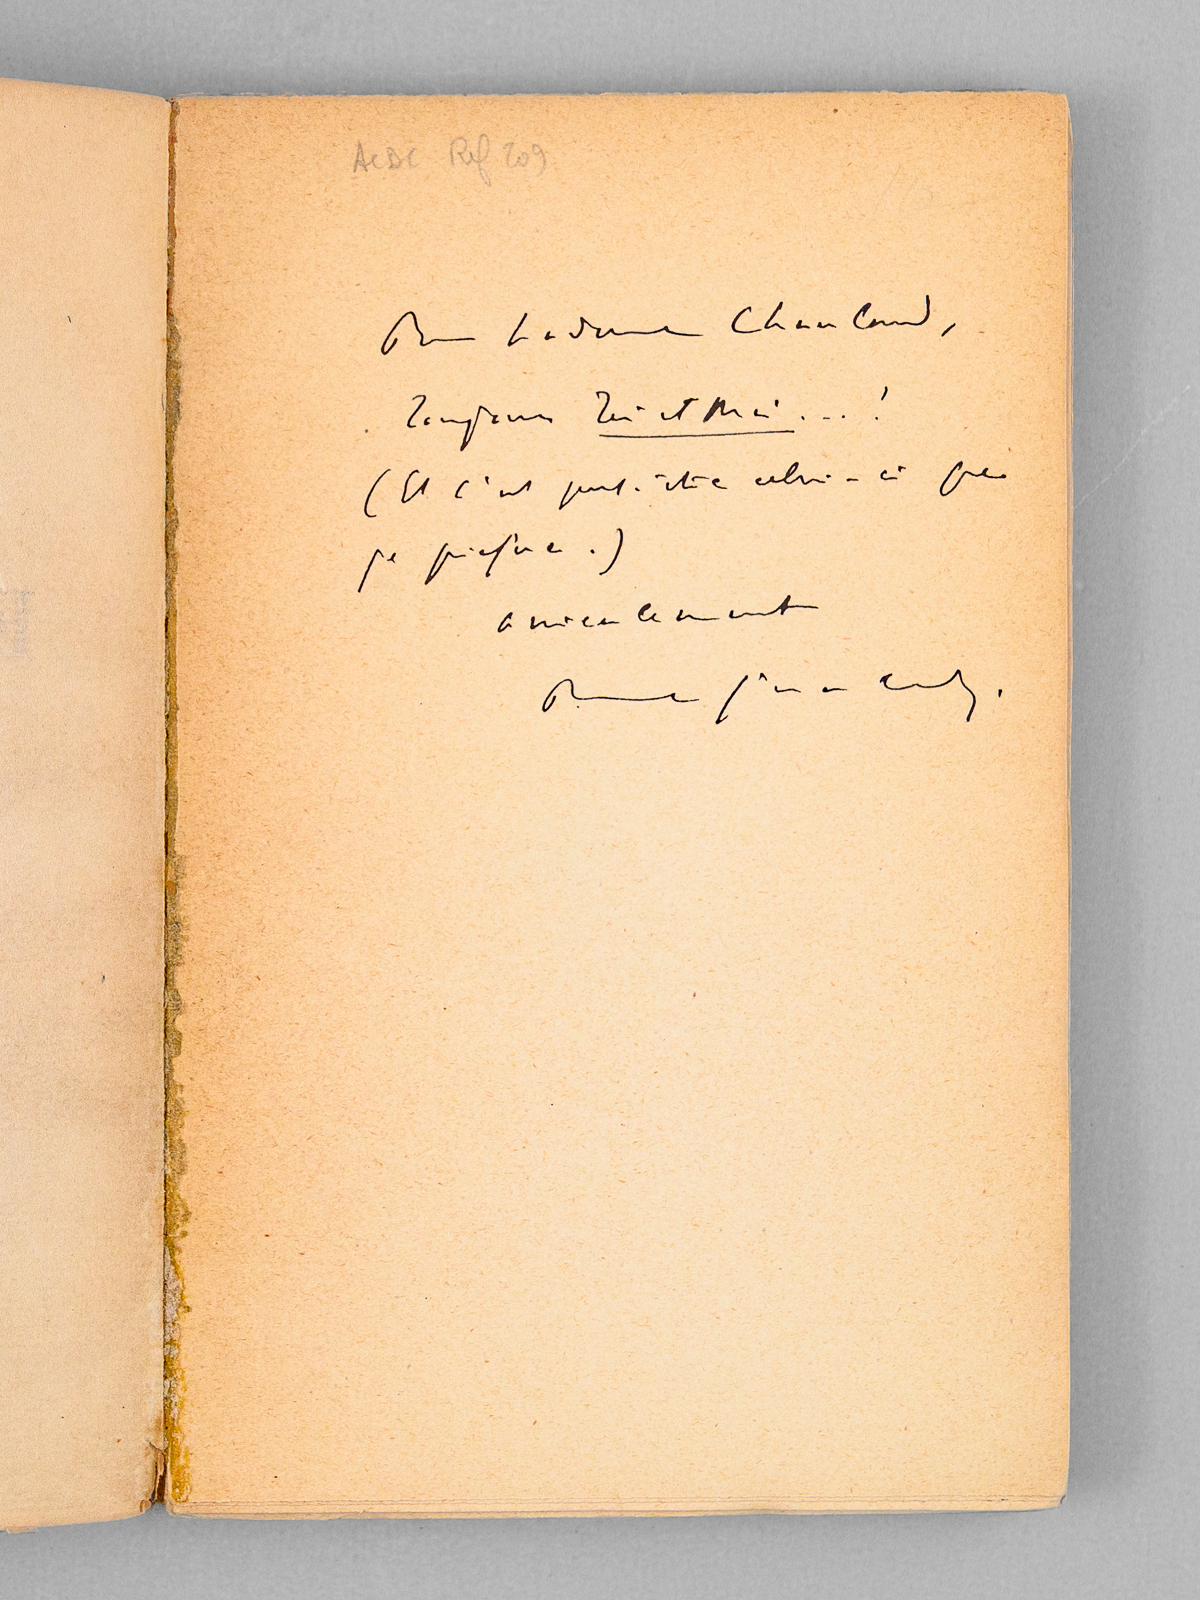 AcDC Ref 209
Pour Madame
Toujours Toi et Moi . . . !
(Et c'est peut-être celui-ci que
je préfère.)
amicalement
Paul Géraldy.